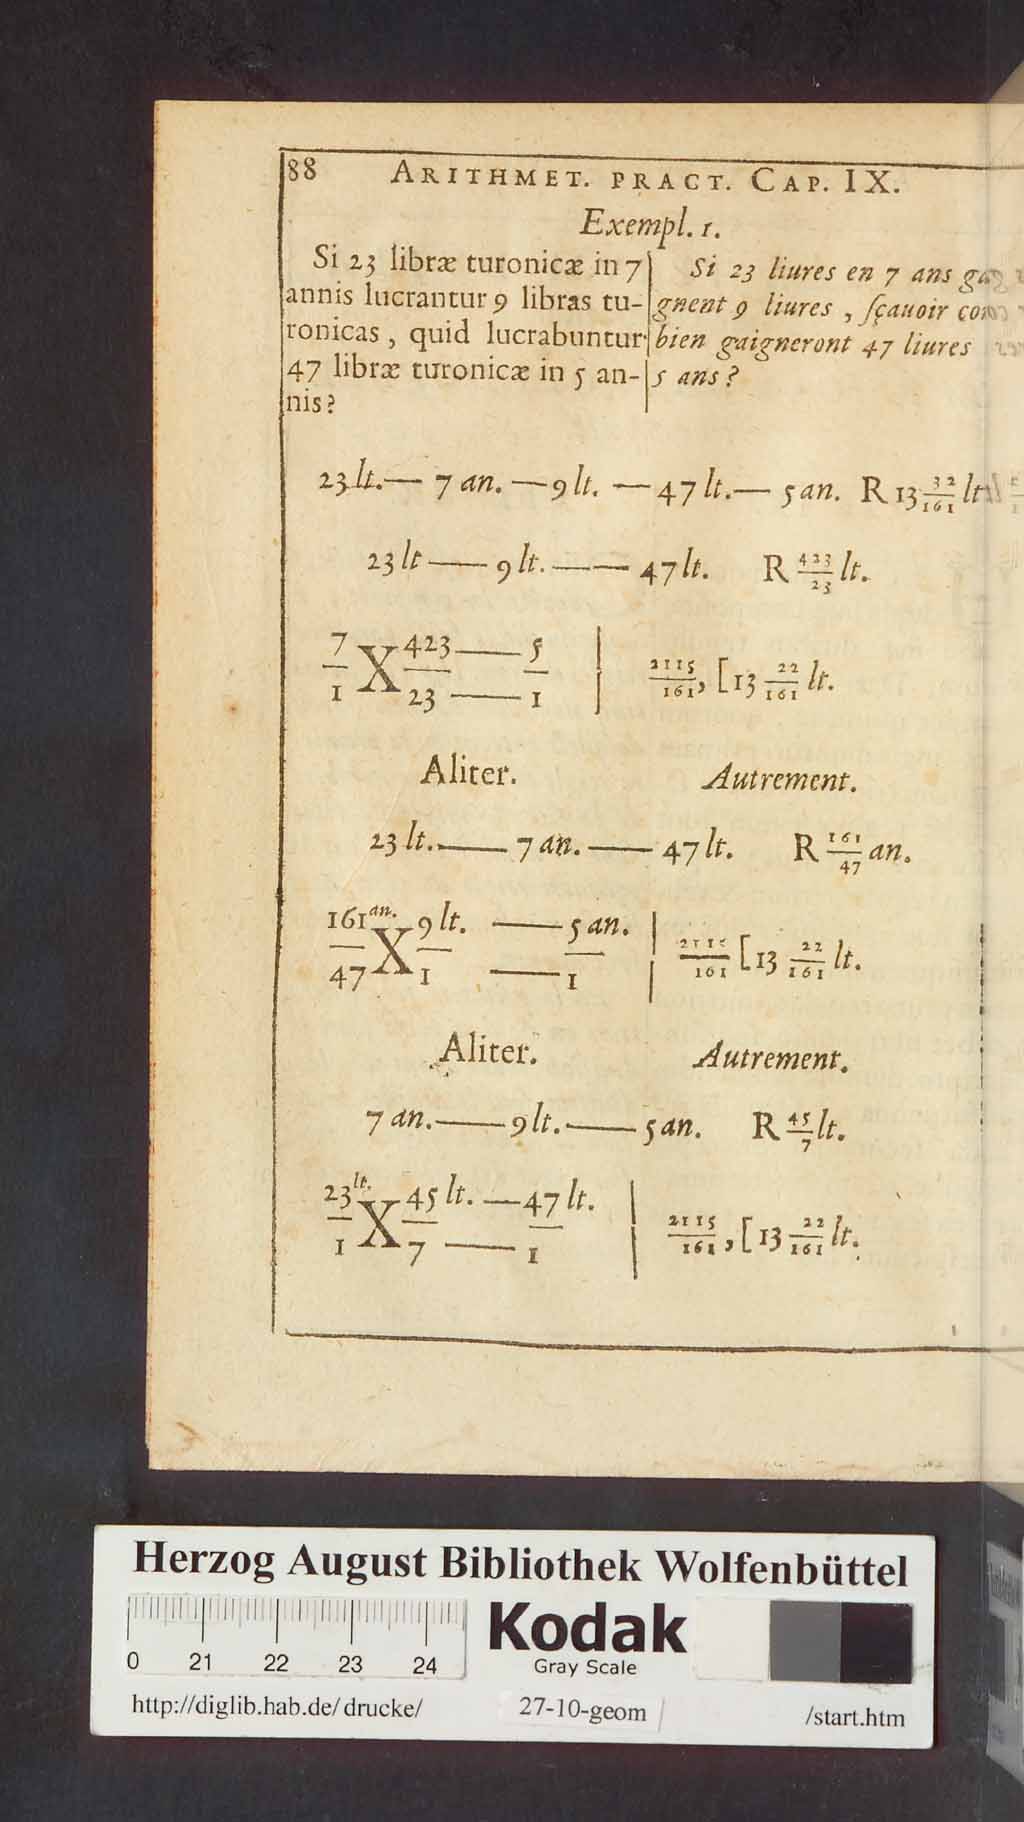 88 ARITHMET. PRACT. CAP. IX.
Exempl. 1.
Si 23 libræ turonicæ in 7
annis lucrantur 9 libras tu-
ronicas, quid lucrabuntur
47 libræ turonicæ in 5 an-
nis?
Si 23 liures en 7 ans gai
gnent 9 liures, sçauoir com
bien gaigneront 47 liures
5 ans?
23 lt. — 7 an. — 9 lt. — 47 lt. — 5 an. R 13 32/161 lt
23 lt — 9 lt. — — 47 lt. R 423/23 lt.
7/1 X 423/23 — 5/1 | 2115/161, [13 22/161 lt.
Aliter. Autrement.
23 lt. — 7 an. — 47 lt. R 161/47 an.
161 an./47 X 9 lt./1 — 5 an./1 | 2115/161 [13 22/161 lt.
Aliter. Autrement.
7 an. — 9 lt. — 5 an. R 45/7 lt.
23 lt./1 X 45 lt./7 — 47 lt./1 | 2115/161, [13 22/161 lt.
Herzog August Bibliothek Wolfenbüttel
0 21 22 23 24
Kodak
Gray Scale
http://diglib.hab.de/drucke/ 27-10-geom /start.htm